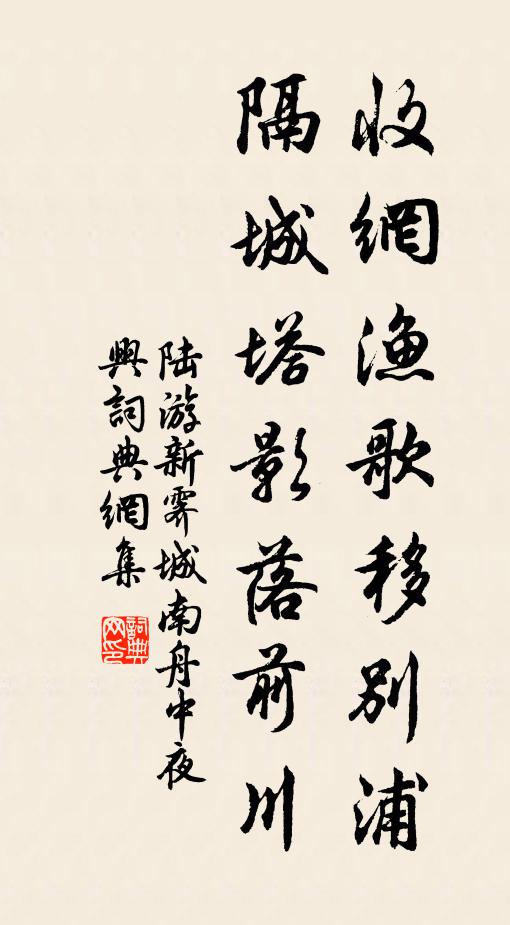 收網漁歌移別浦
隔城塔影落前川
陆游新霽城南舟中夜
興詞典網集
詞典網印